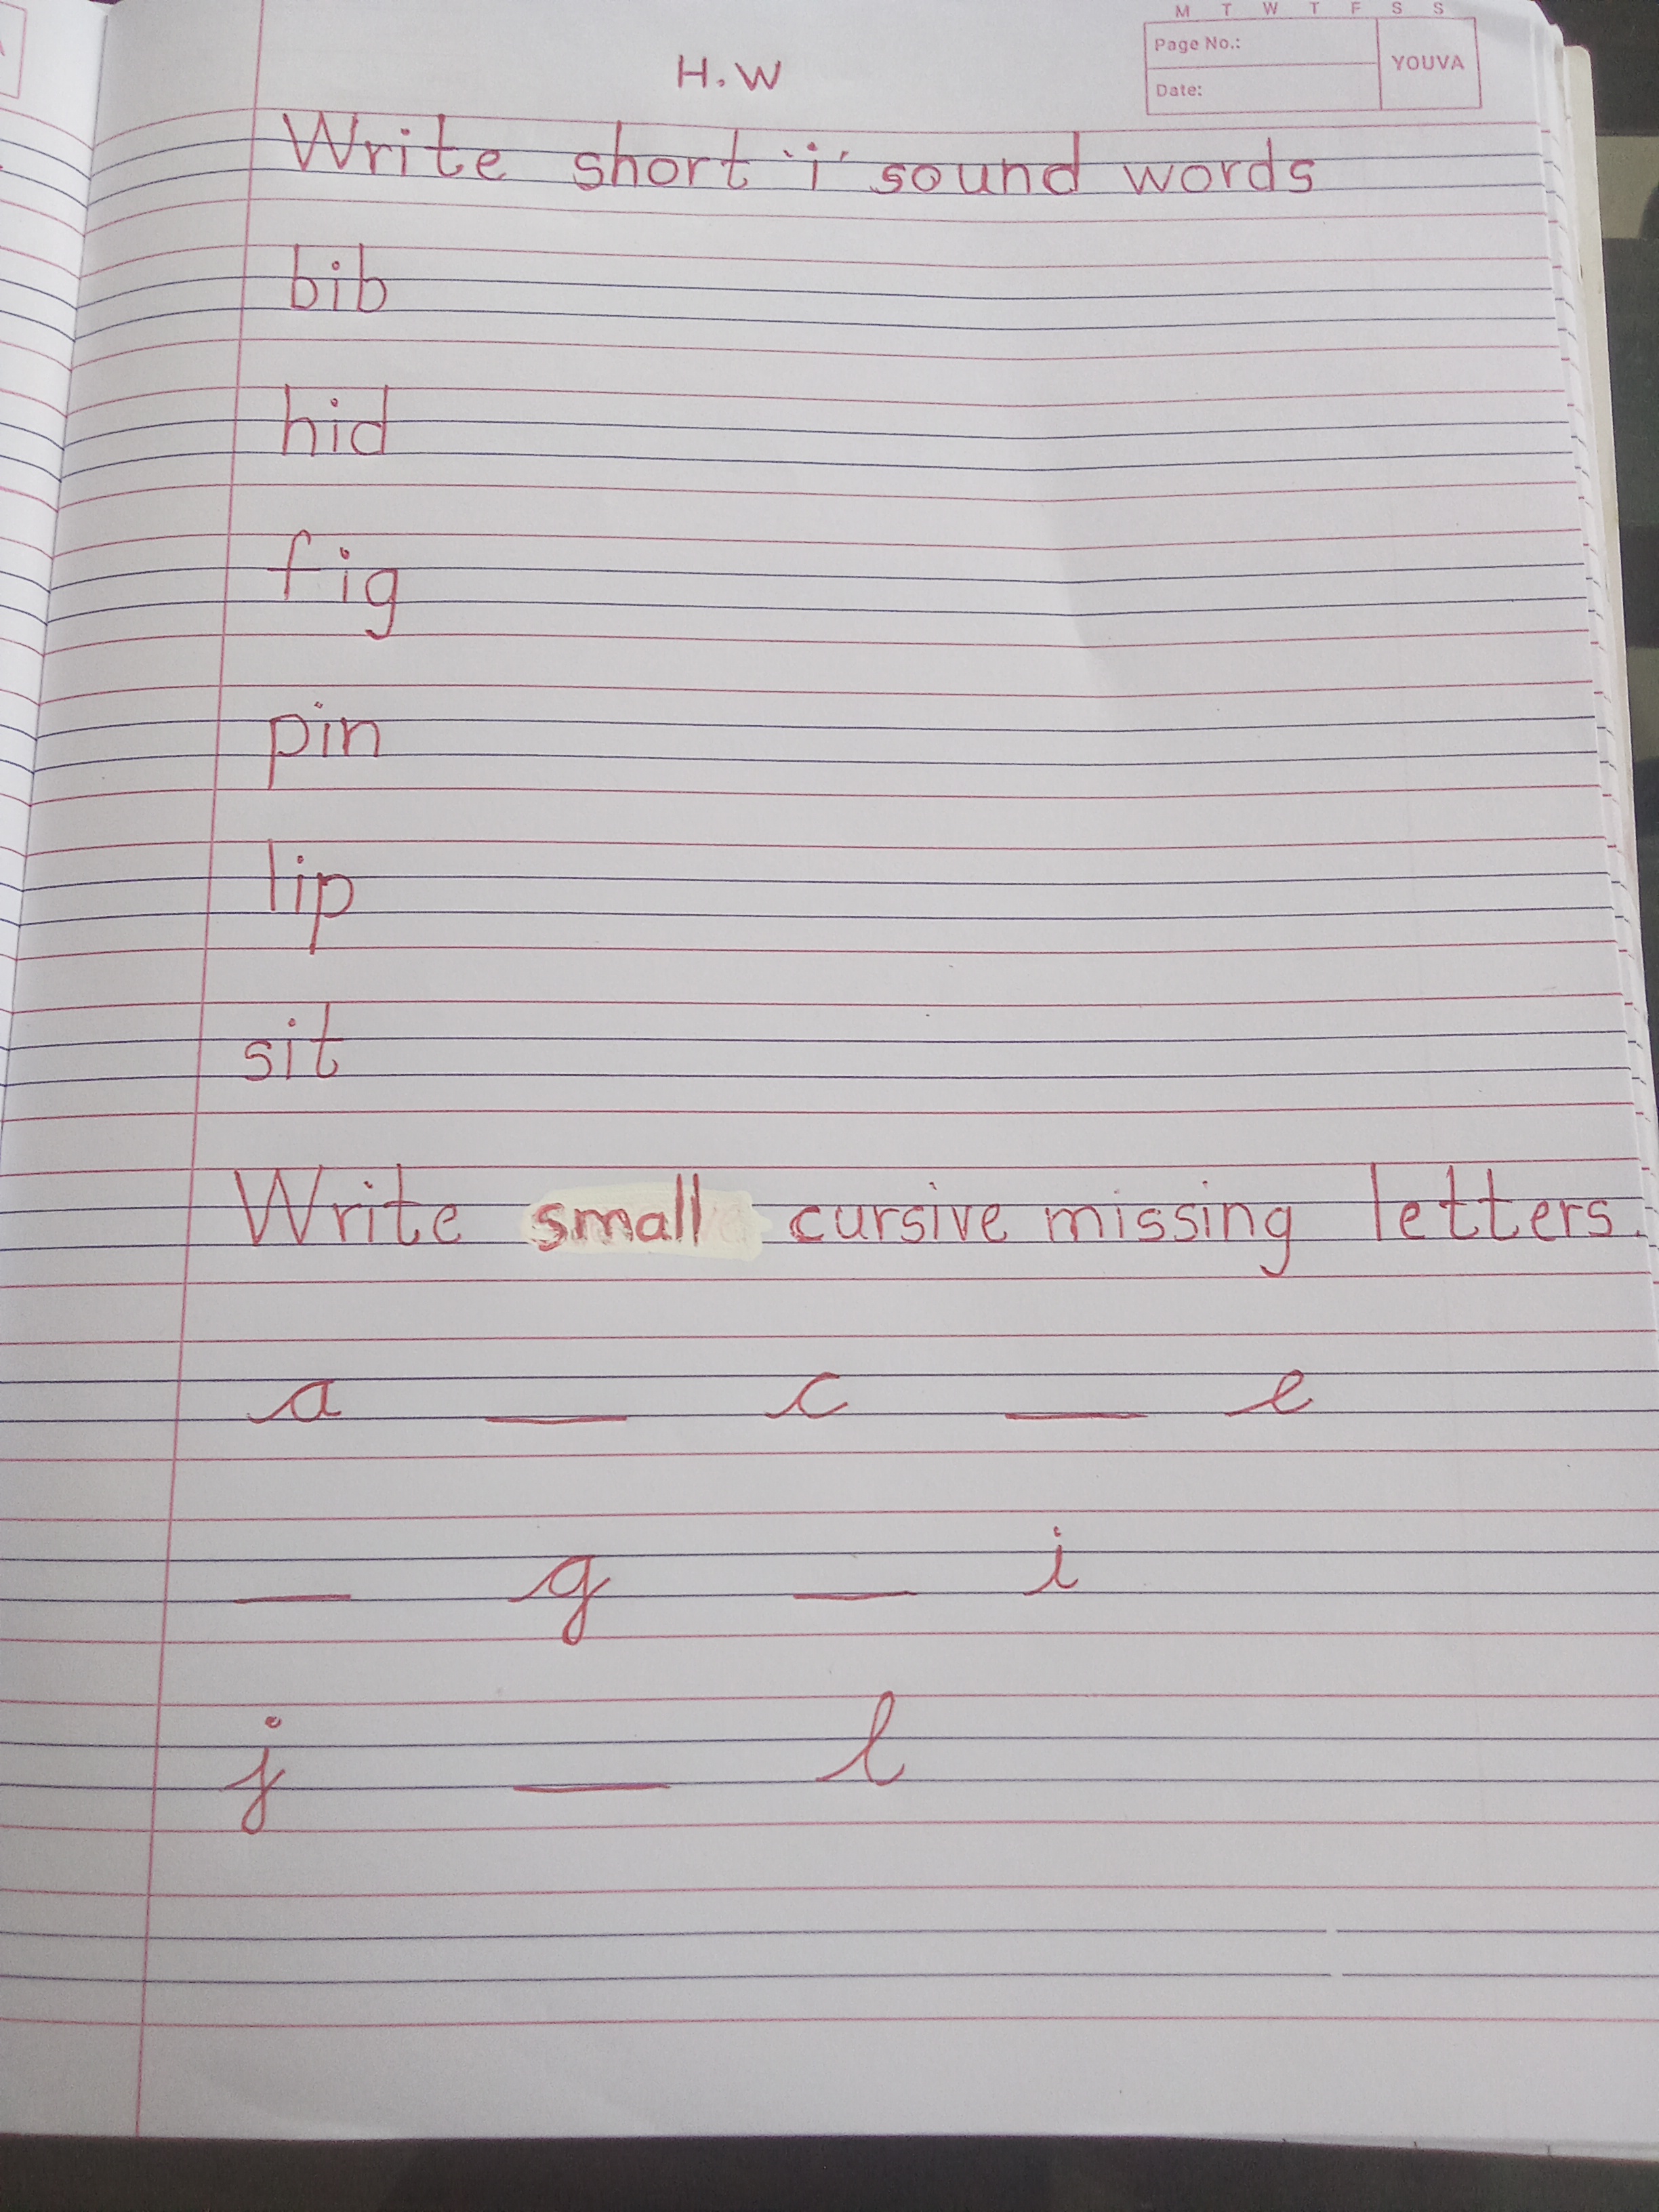 M T W T F S S
Page No.:
YOUVA
Date:
H.W
Write short 'i' sound words
bib
hid
fig
pin
lip
sit
Write small cursive missing letters.
a __ c __ e
__ g __ i
j __ l